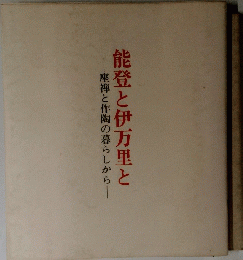 能登と伊万里と
座禅と作陶の暮らしから―